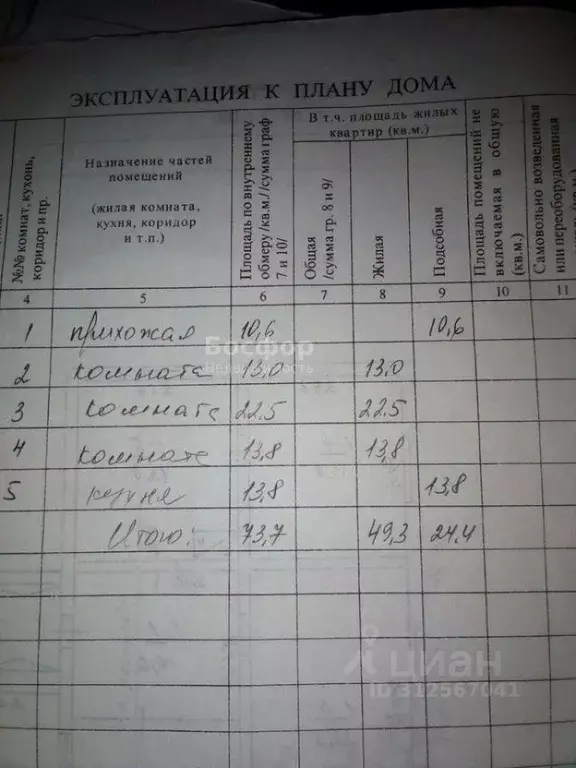 ЭКСПЛУАТАЦИЯ К ПЛАНУ ДОМА
№№ комнат, кухонь, коридор и пр.
Назначение частей
помещений
(жилая комната,
кухня, коридор
и т.п.)
Площадь по внутреннему
обмеру /кв.м./ /сумма граф
7 и 10/
В т.ч. площадь жилых
квартир (кв.м.)
Общая
/сумма гр. 8 и 9/
Жилая
Подсобная
Площадь помещений не
включаемая в общую
(кв.м.)
Самовольно возведенная
или переоборудованная
4 5 6 7 8 9 10 11
1 прихожая 10,6 10,6
2 комната 13,0 13,0
3 комната 22,5 22,5
4 комната 13,8 13,8
5 кухня 13,8 13,8
Итого: 73,7 49,3 24,4
Босфор
Недвижимость
циан
ID 312567041